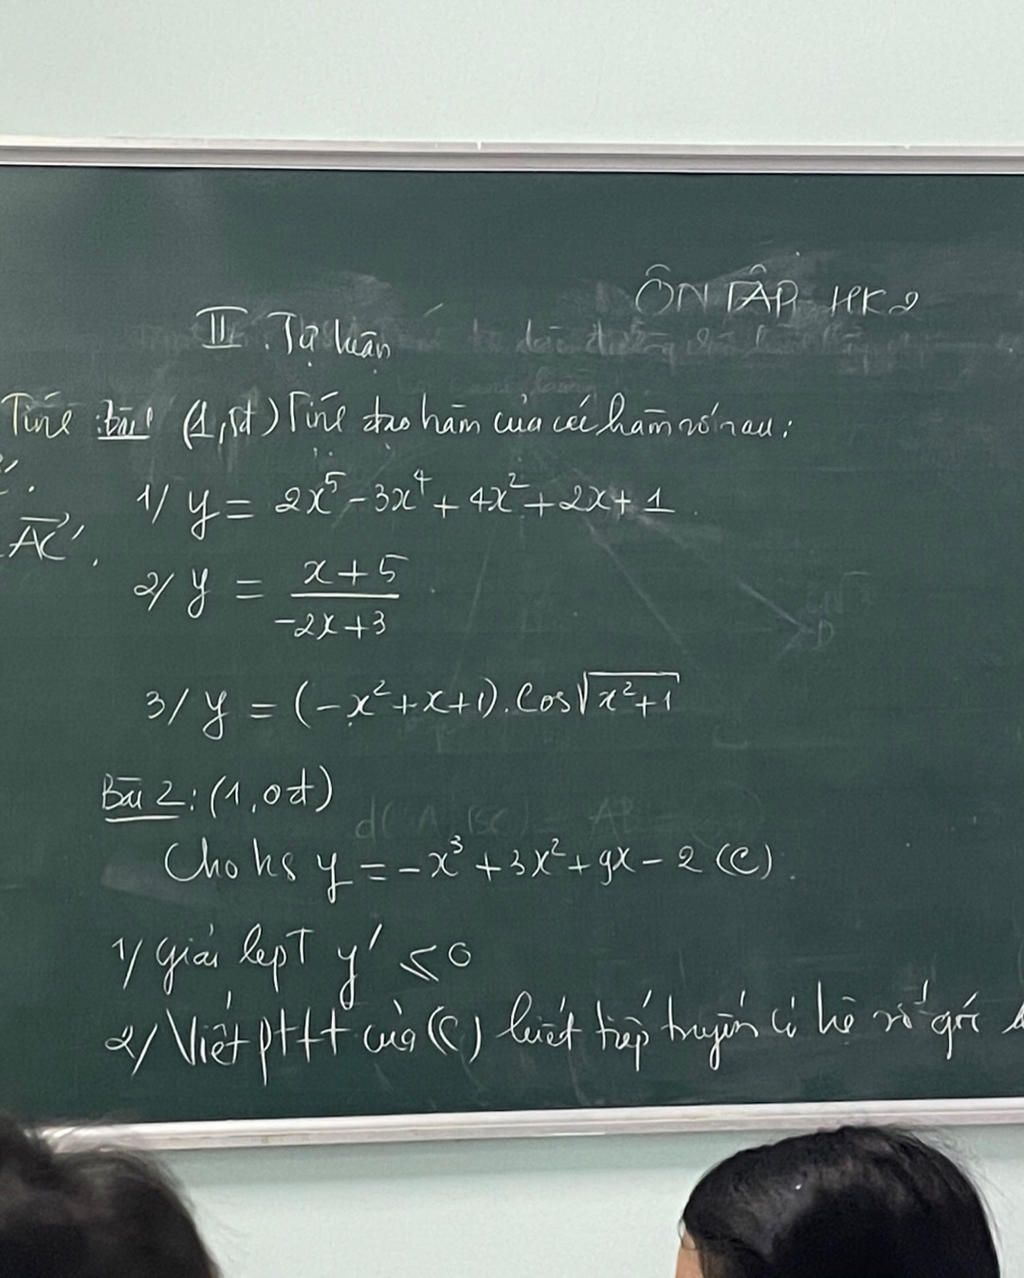 ÔN TẬP HK2
II. Tự luận
Bài 1 (1,5đ) Tính đạo hàm của các hàm số sau:
Tính
AC'.
1/ y = 2x⁵ - 3x⁴ + 4x² + 2x + 1
2/ y = (x+5)/(-2x+3)
3/ y = (-x²+x+1).cos√(x²+1)
Bài 2: (1,0đ)
Cho hs y = -x³ + 3x² + 9x - 2 (C).
1/ giải bpt y' ≤ 0
2/ Viết pttt của (C) biết tiếp tuyến có hệ số góc